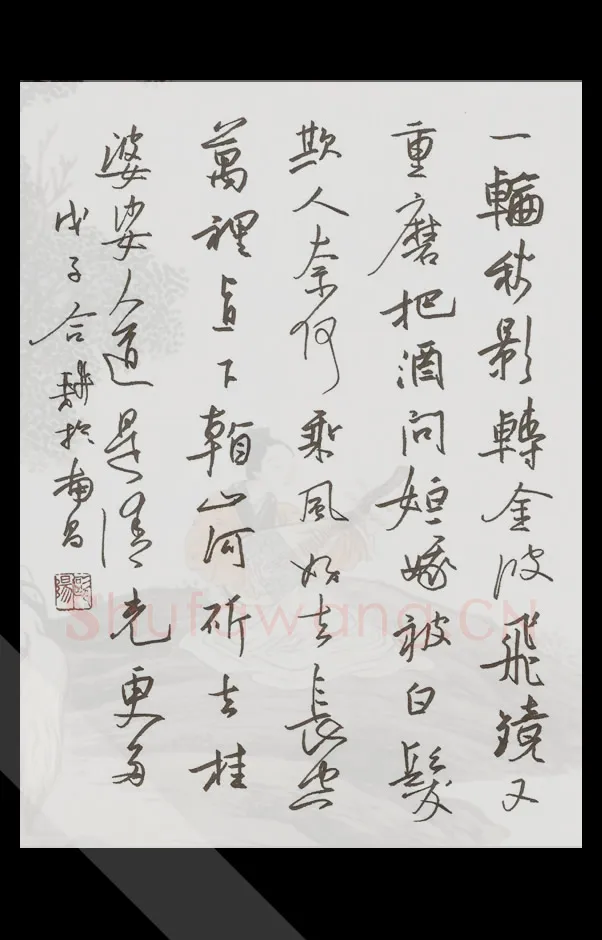 一輪秋影轉金波飛鏡又
重磨把酒問姮娥被白髮
欺人奈何乘風好去長空
萬裡直下看山河斫去桂
婆娑人道是清光更多
戊子合耕於南昌
歐陽
Shufawang.CN